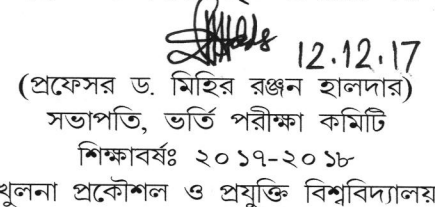 12.12.17
(প্রফেসর ড. মিহির রঞ্জন হালদার)
সভাপতি, ভর্তি পরীক্ষা কমিটি
শিক্ষাবর্ষঃ ২০১৭-২০১৮
খুলনা প্রকৌশল ও প্রযুক্তি বিশ্ববিদ্যালয়